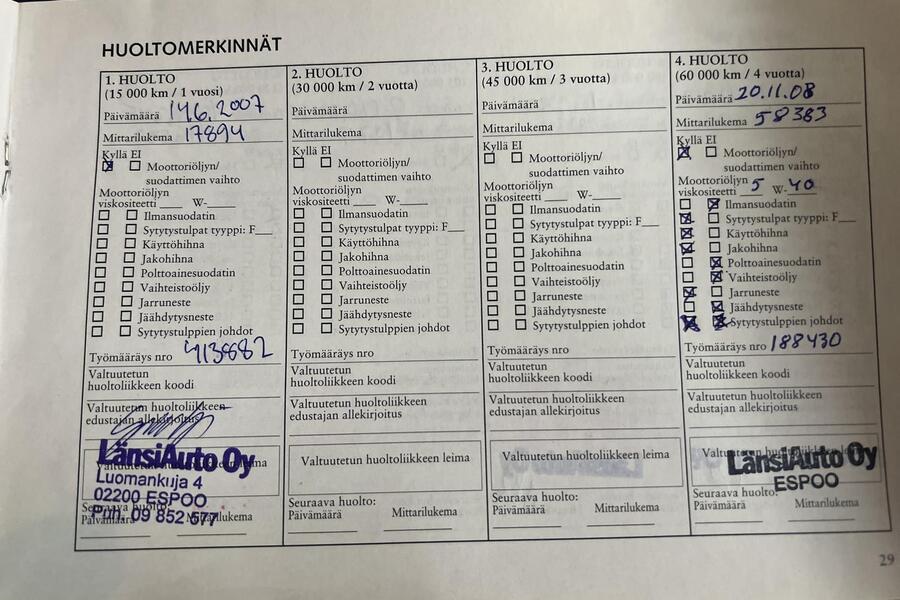 HUOLTOMERKINNÄT
1. HUOLTO
(15 000 km / 1 vuosi)
Päivämäärä 14.6.2007
Mittarilukema 17894
Kyllä EI
Moottoriöljyn/
suodattimen vaihto
Moottoriöljyn
viskositeetti ___ W-____
Ilmansuodatin
Sytytystulpat tyyppi: F__
Käyttöhihna
Jakohihna
Polttoainesuodatin
Vaihteistoöljy
Jarruneste
Jäähdytysneste
Sytytystulppien johdot
Työmääräys nro 413882
Valtuutetun
huoltoliikkeen koodi
Valtuutetun huoltoliikkeen
edustajan allekirjoitus
Valtuutetun huoltoliikkeen leima
LänsiAuto Oy
Luomankuja 4
02200 ESPOO
Puh. 09 852 577
Seuraava huolto:
Päivämäärä Mittarilukema
2. HUOLTO
(30 000 km / 2 vuotta)
Päivämäärä
Mittarilukema
Kyllä EI
Moottoriöljyn/
suodattimen vaihto
Moottoriöljyn
viskositeetti ___ W-____
Ilmansuodatin
Sytytystulpat tyyppi: F__
Käyttöhihna
Jakohihna
Polttoainesuodatin
Vaihteistoöljy
Jarruneste
Jäähdytysneste
Sytytystulppien johdot
Työmääräys nro
Valtuutetun
huoltoliikkeen koodi
Valtuutetun huoltoliikkeen
edustajan allekirjoitus
Valtuutetun huoltoliikkeen leima
Seuraava huolto:
Päivämäärä Mittarilukema
3. HUOLTO
(45 000 km / 3 vuotta)
Päivämäärä
Mittarilukema
Kyllä EI
Moottoriöljyn/
suodattimen vaihto
Moottoriöljyn
viskositeetti ___ W-____
Ilmansuodatin
Sytytystulpat tyyppi: F__
Käyttöhihna
Jakohihna
Polttoainesuodatin
Vaihteistoöljy
Jarruneste
Jäähdytysneste
Sytytystulppien johdot
Työmääräys nro
Valtuutetun
huoltoliikkeen koodi
Valtuutetun huoltoliikkeen
edustajan allekirjoitus
Valtuutetun huoltoliikkeen leima
Seuraava huolto:
Päivämäärä Mittarilukema
4. HUOLTO
(60 000 km / 4 vuotta)
Päivämäärä 20.11.08
Mittarilukema 58383
Kyllä EI
Moottoriöljyn/
suodattimen vaihto
Moottoriöljyn
viskositeetti 5 W-40
Ilmansuodatin
Sytytystulpat tyyppi: F__
Käyttöhihna
Jakohihna
Polttoainesuodatin
Vaihteistoöljy
Jarruneste
Jäähdytysneste
Sytytystulppien johdot
Työmääräys nro 188430
Valtuutetun
huoltoliikkeen koodi
Valtuutetun huoltoliikkeen
edustajan allekirjoitus
Valtuutetun huoltoliikkeen leima
LänsiAuto Oy
ESPOO
Seuraava huolto:
Päivämäärä Mittarilukema
29